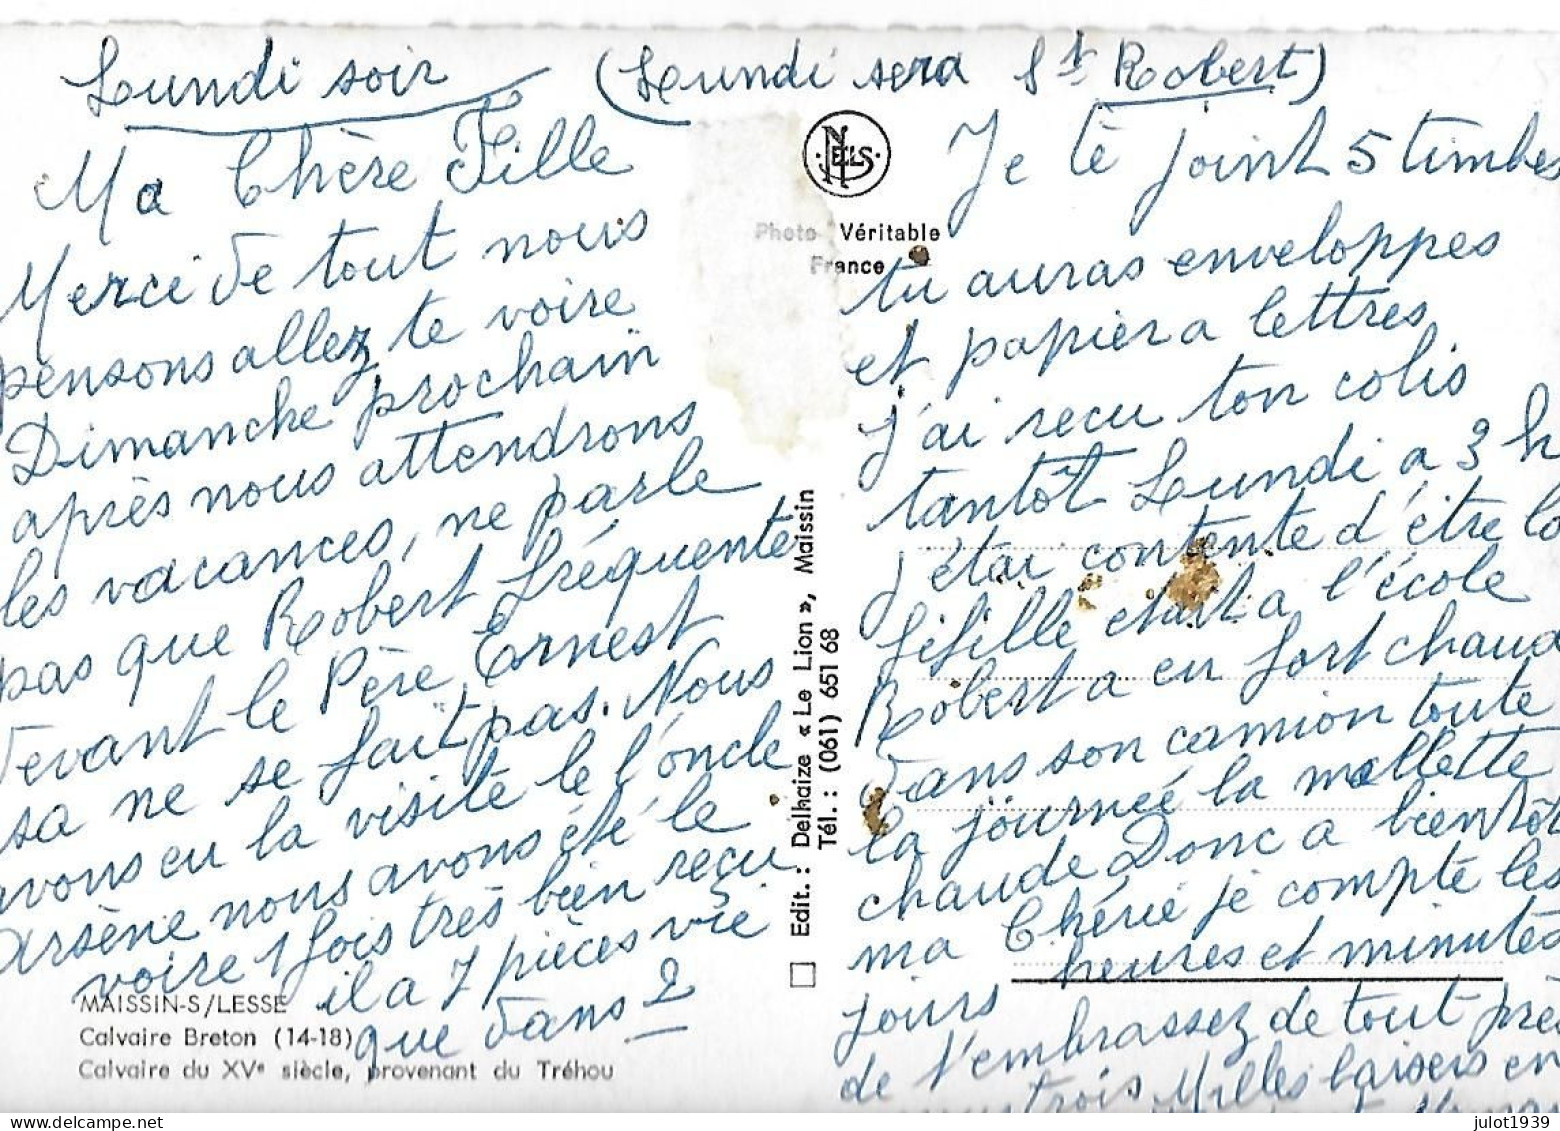 Lundi soir (Lundi sera St Robert)
Ma Chère Fille
Merci de tout nous
pensons allez te voire
Dimanche prochain
après nous attendrons
les vacances, ne parle
pas que Robert fréquente
devant le Père Ernest
sa ne se fait pas. Nous
avons eu la visite le l'oncle
arsène nous avons été le
voire 1 fois très bien reçu
il a 7 pièces vie
que dans 2
MAISSIN-S/LESSE
Calvaire Breton (14-18)
Calvaire du XVe siècle, provenant du Tréhou
NELS
Photo Véritable
France
Edit. : Delhaize « Le Lion », Maissin
Tél. : (061) 651 68
Je tè joint 5 timbes
tu auras enveloppes
et papier a lettres
j'ai recu ton colis
tantôt Lundi a 3 h
j'étai contente d'être la
fifille etait a l'école
Robert a eu fort chaud
dans son camion toute
la journeé la mallette
chaude Donc a bientôt
ma Chérie je compte les
heures et minutes
jours
de t'embrassez de tout près
trois Milles baisers en
julot1939